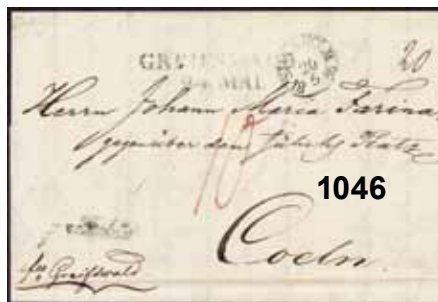 20
GREIFSWALD
24 MAI
Herrn Johann Maria Farina
gegenüber dem Jülichs Platz
10
1046
Coeln.
Greifswald